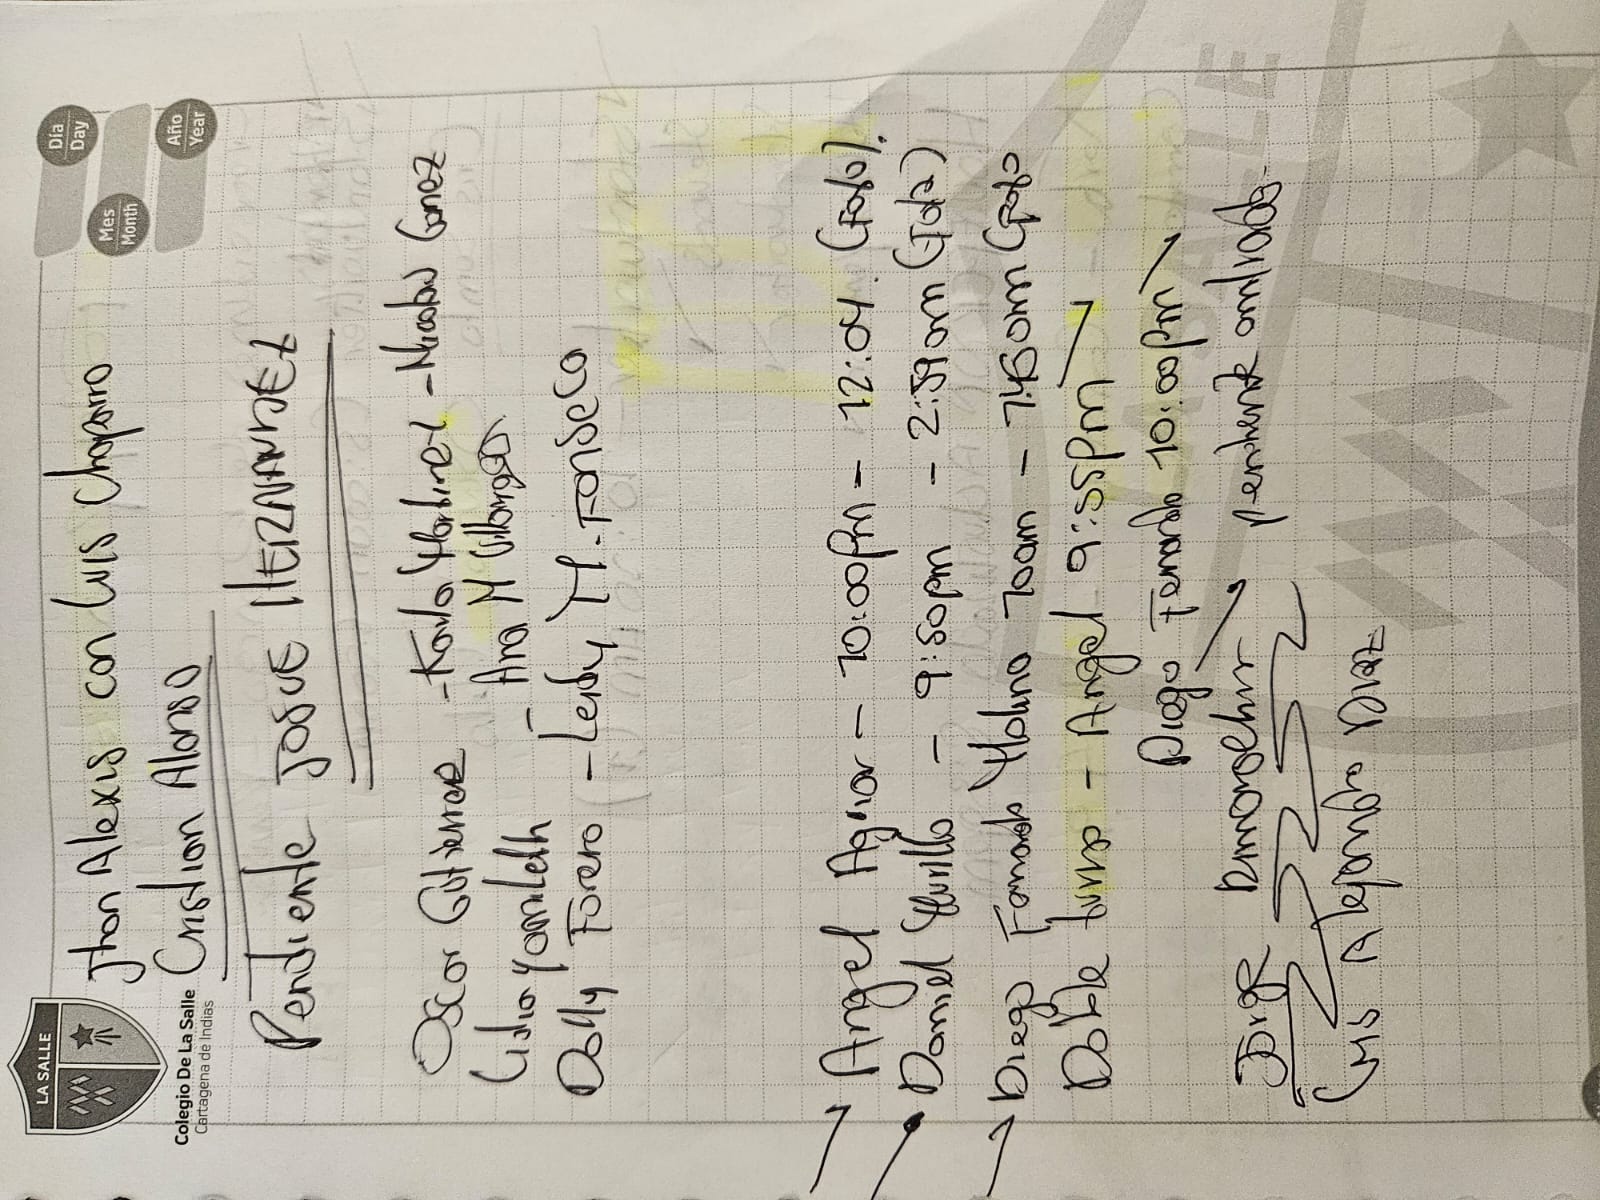 LA SALLE
Colegio De La Salle
Cartagena de Indias
Día
Day
Mes
Month
Año
Year
Jhon Alexis con Luis Chaparro
Cristian Alonso
Pendiente JOSUE HERNANDEZ
Oscar Gutierrez - Karla Martinez - Nicolas Gomez
Yamileth - Ana M
Dolly Forero - Leidy M. FONSECA
Angel Aguiar - 10:00pm - 12:04.
Daniel Murillo - 9:50pm - 2:59am
Diego Fernando Molina 7:00am - 7:45
Doble turno - Angel 9:55Pm
Diego Fernando 10:00Pm
Jorge pendiente
Luis Alejandro Diaz
LA SALLE